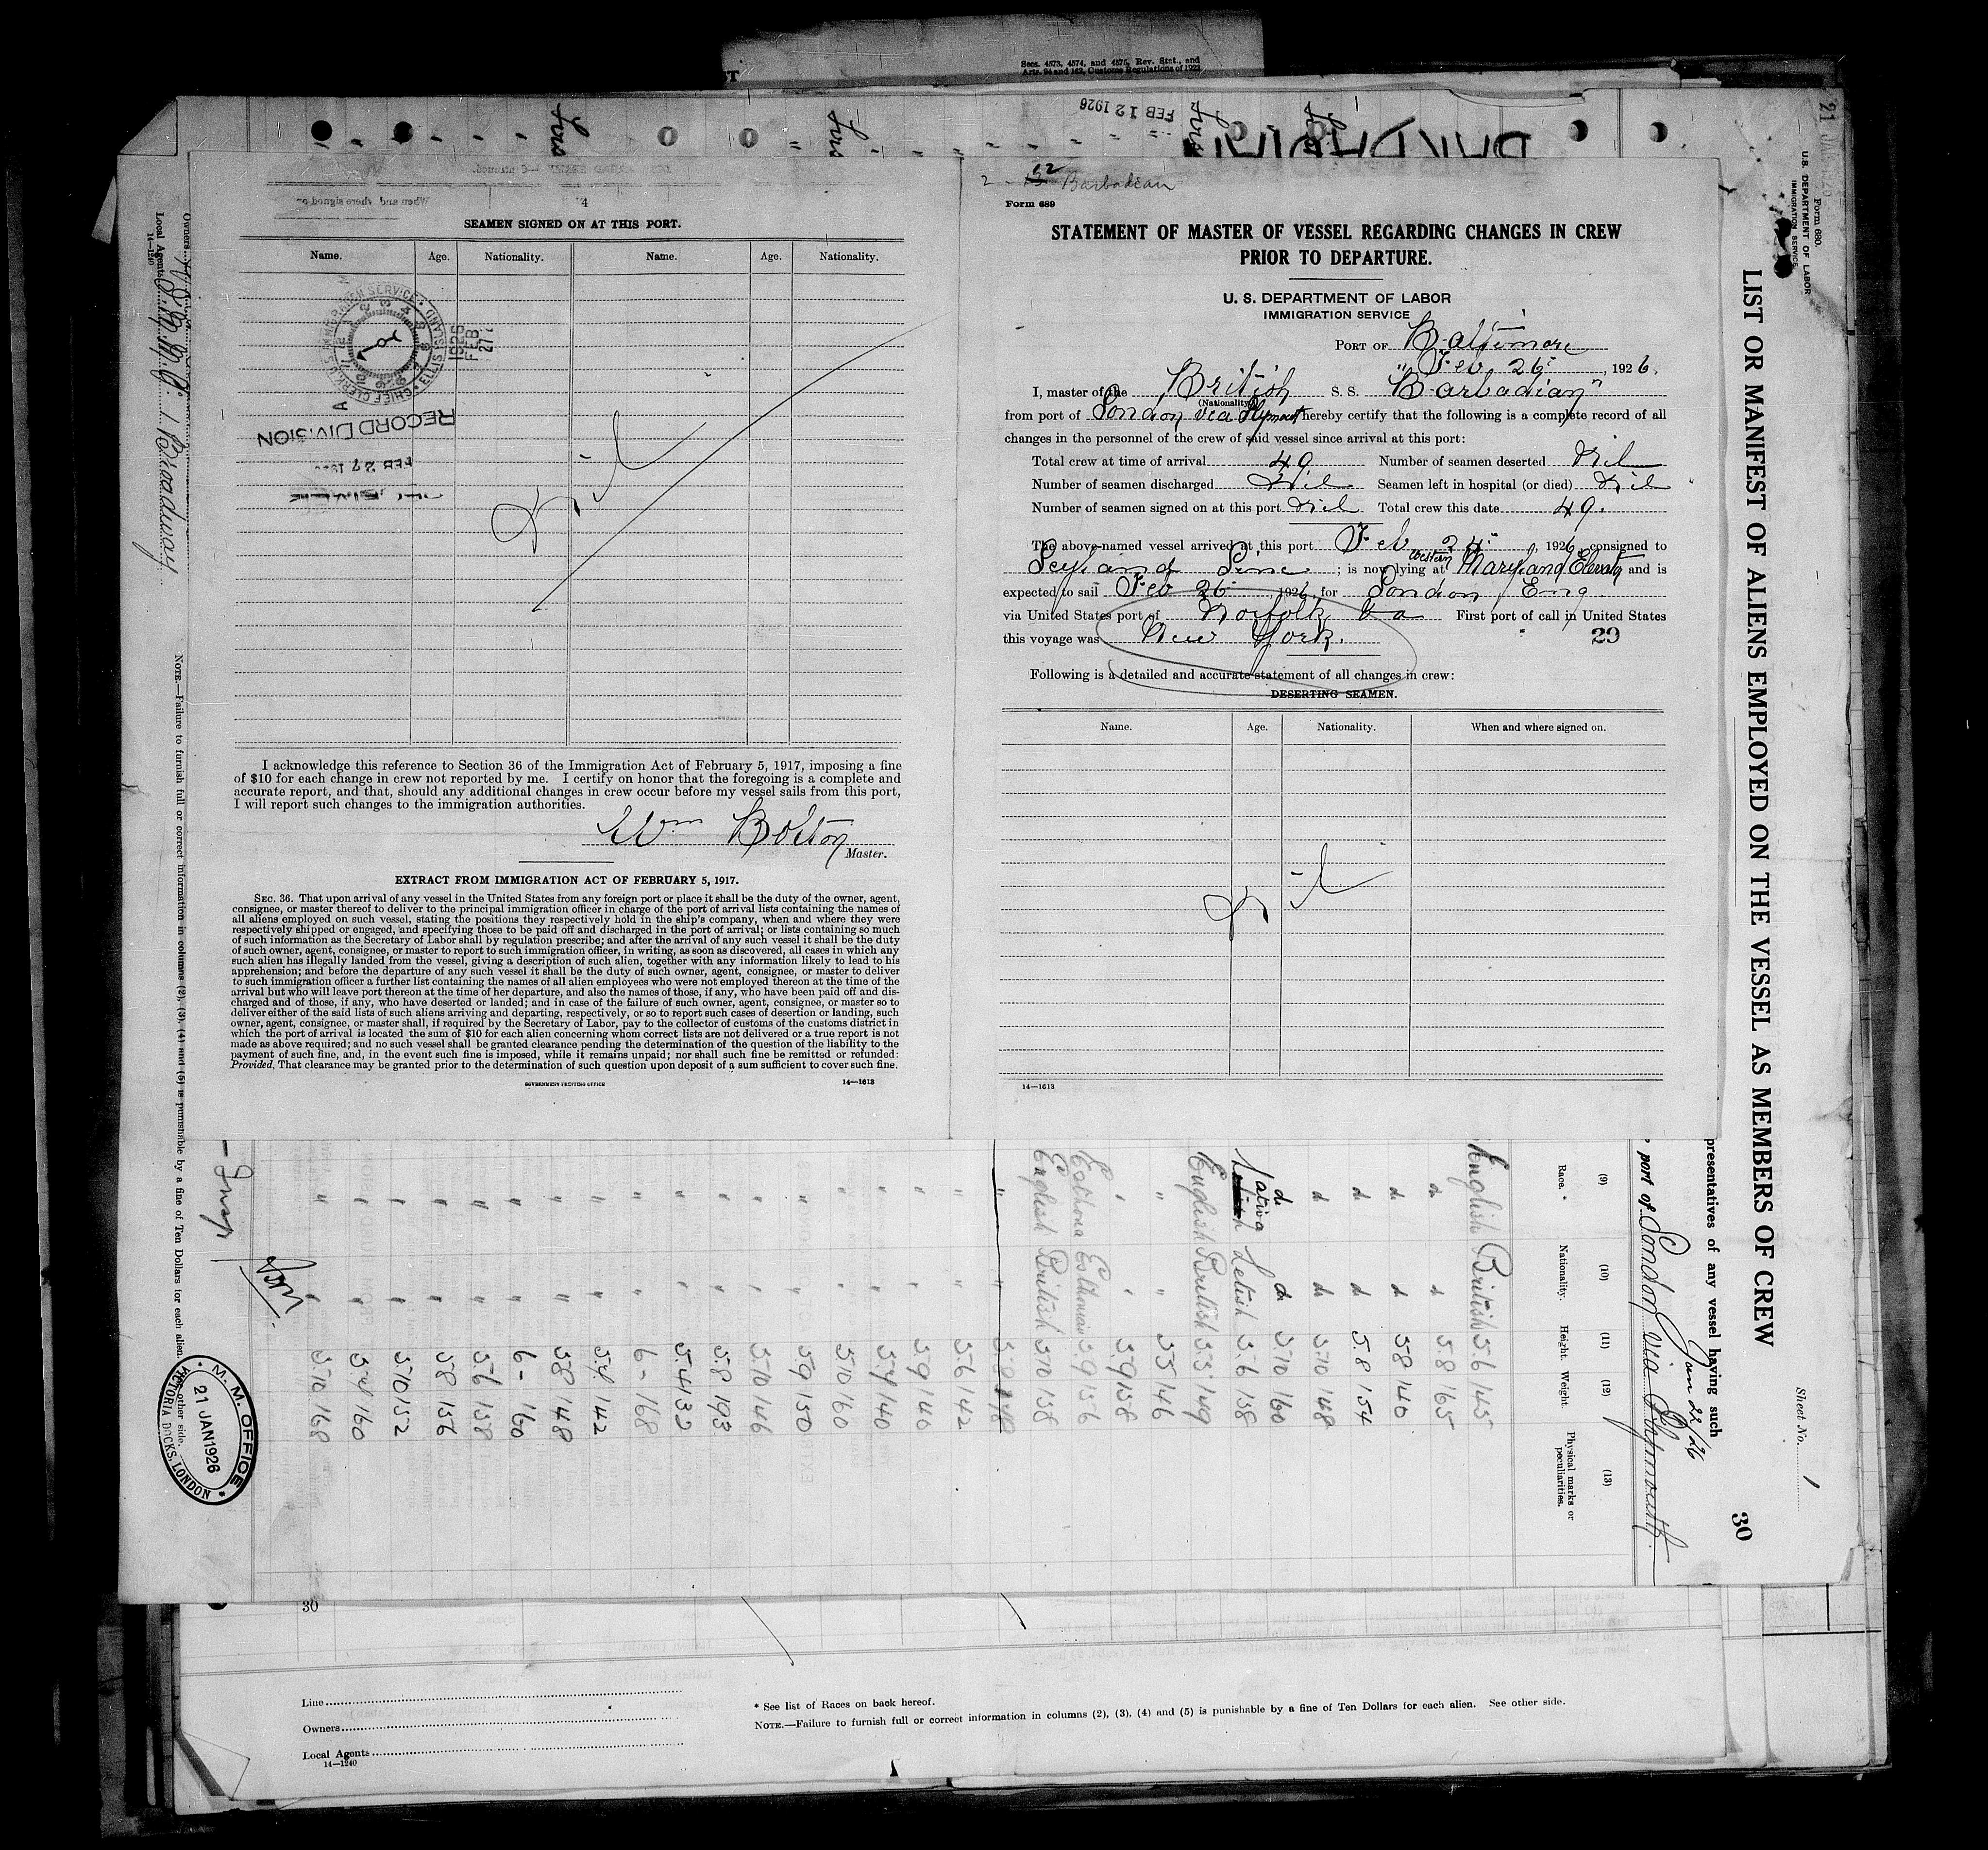 Secs. 4573, 4574, and 4575, Rev. Stat., and
Arts. 94 and 162, Customs Regulations of 1922
FEB 12 1926
4
SEAMEN SIGNED ON AT THIS PORT.
Name. Age. Nationality. Name. Age. Nationality.
CHIEF CLERK U.S. IMMIGRATION SERVICE • ELLIS ISLAND •
1926
FEB
27
RECORD DIVISION
FEB 27
Nil
I acknowledge this reference to Section 36 of the Immigration Act of February 5, 1917, imposing a fine
of $10 for each change in crew not reported by me. I certify on honor that the foregoing is a complete and
accurate report, and that, should any additional changes in crew occur before my vessel sails from this port,
I will report such changes to the immigration authorities.
Wm Bolton
Master.
EXTRACT FROM IMMIGRATION ACT OF FEBRUARY 5, 1917.
SEC. 36. That upon arrival of any vessel in the United States from any foreign port or place it shall be the duty of the owner, agent,
consignee, or master thereof to deliver to the principal immigration officer in charge of the port of arrival lists containing the names of
all aliens employed on such vessel, stating the positions they respectively hold in the ship's company, when and where they were
respectively shipped or engaged, and specifying those to be paid off and discharged in the port of arrival; or lists containing so much
of such information as the Secretary of Labor shall by regulation prescribe; and after the arrival of any such vessel it shall be the duty
of such owner, agent, consignee, or master to report to such immigration officer, in writing, as soon as discovered, all cases in which any
such alien has illegally landed from the vessel, giving a description of such alien, together with any information likely to lead to his
apprehension; and before the departure of any such vessel it shall be the duty of such owner, agent, consignee, or master to deliver
to such immigration officer a further list containing the names of all alien employees who were not employed thereon at the time of the
arrival but who will leave port thereon at the time of her departure, and also the names of those, if any, who have been paid off and dis-
charged and of those, if any, who have deserted or landed; and in case of the failure of such owner, agent, consignee, or master so to
deliver either of the said lists of such aliens arriving and departing, respectively, or so to report such cases of desertion or landing, such
owner, agent, consignee, or master shall, if required by the Secretary of Labor, pay to the collector of customs of the customs district in
which the port of arrival is located the sum of $10 for each alien concerning whom correct lists are not delivered or a true report is not
made as above required; and no such vessel shall be granted clearance pending the determination of the question of the liability to the
payment of such fine, and, in the event such fine is imposed, while it remains unpaid; nor shall such fine be remitted or refunded:
Provided, That clearance may be granted prior to the determination of such question upon deposit of a sum sufficient to cover such fine.
GOVERNMENT PRINTING OFFICE 14—1613
12
2 Barbadian
Form 689
STATEMENT OF MASTER OF VESSEL REGARDING CHANGES IN CREW
PRIOR TO DEPARTURE.
U. S. DEPARTMENT OF LABOR
IMMIGRATION SERVICE
PORT OF Baltimore
Feb 26, 1926.
I, master of the British S. S. "Barbadian"
(Nationality)
from port of London via Plymouth hereby certify that the following is a complete record of all
changes in the personnel of the crew of said vessel since arrival at this port:
Total crew at time of arrival 49 Number of seamen deserted Nil
Number of seamen discharged Nil Seamen left in hospital (or died) Nil
Number of seamen signed on at this port Nil Total crew this date 49.
The above-named vessel arrived at this port Feb 24, 1926, consigned to
Leyland Line ; is now lying at Western Maryland Elevator and is
expected to sail Feb 26, 1926, for London Eng
via United States port of Norfolk Va First port of call in United States
this voyage was New York. 29
Following is a detailed and accurate statement of all changes in crew:
DESERTING SEAMEN.
Name. Age. Nationality. When and where signed on.
Nil
14—1613
21 JAN 1926
Form 680.
U. S. DEPARTMENT OF LABOR
IMMIGRATION SERVICE
LIST OR MANIFEST OF ALIENS EMPLOYED ON THE VESSEL AS MEMBERS OF CREW
30
Sheet No. 1
presentatives of any vessel having such
Jan 22/26
port of London via Plymouth
(9) (10) (11) (12) (13)
Race. * Nationality. Height. Weight. Physical marks or peculiarities.
English British 5.6 145
do do 5.8 165
do do 5 8 140
do do 5.8 154
do do 5 10 148
do do 5 10 160
Lativa Letish 5.6 138
English British 5.5 149
" " 5 5 146
" " 5.9 158
Esthonia Esthonian 5.9 156
English British 5 10 138
" " 5 6 142
" " 5 9 140
" " 5.4 140
" " 5 10 160
" " 5 9 150
" " 5 10 146
" " 5.8 193
" " 5.4 132
" " 6 - 168
" " 5.4 142
" " 5 8 148
" " 6 - 160
" " 5 6 158
" " 5 8 156
" " 5 10 152
" " 5.4 160
" " 5 10 168
Owners
Local Agents 1 Broadway
14—1240
NOTE.—Failure to furnish full or correct information in columns (2), (3), (4) and (5) is punishable by a fine of Ten Dollars for each alien. See other side.
M. M. OFFICE
21 JAN 1926
VICTORIA DOCKS, LONDON
30
Line
Owners
Local Agents
14—1240
* See list of Races on back hereof.
NOTE.—Failure to furnish full or correct information in columns (2), (3), (4) and (5) is punishable by a fine of Ten Dollars for each alien. See other side.